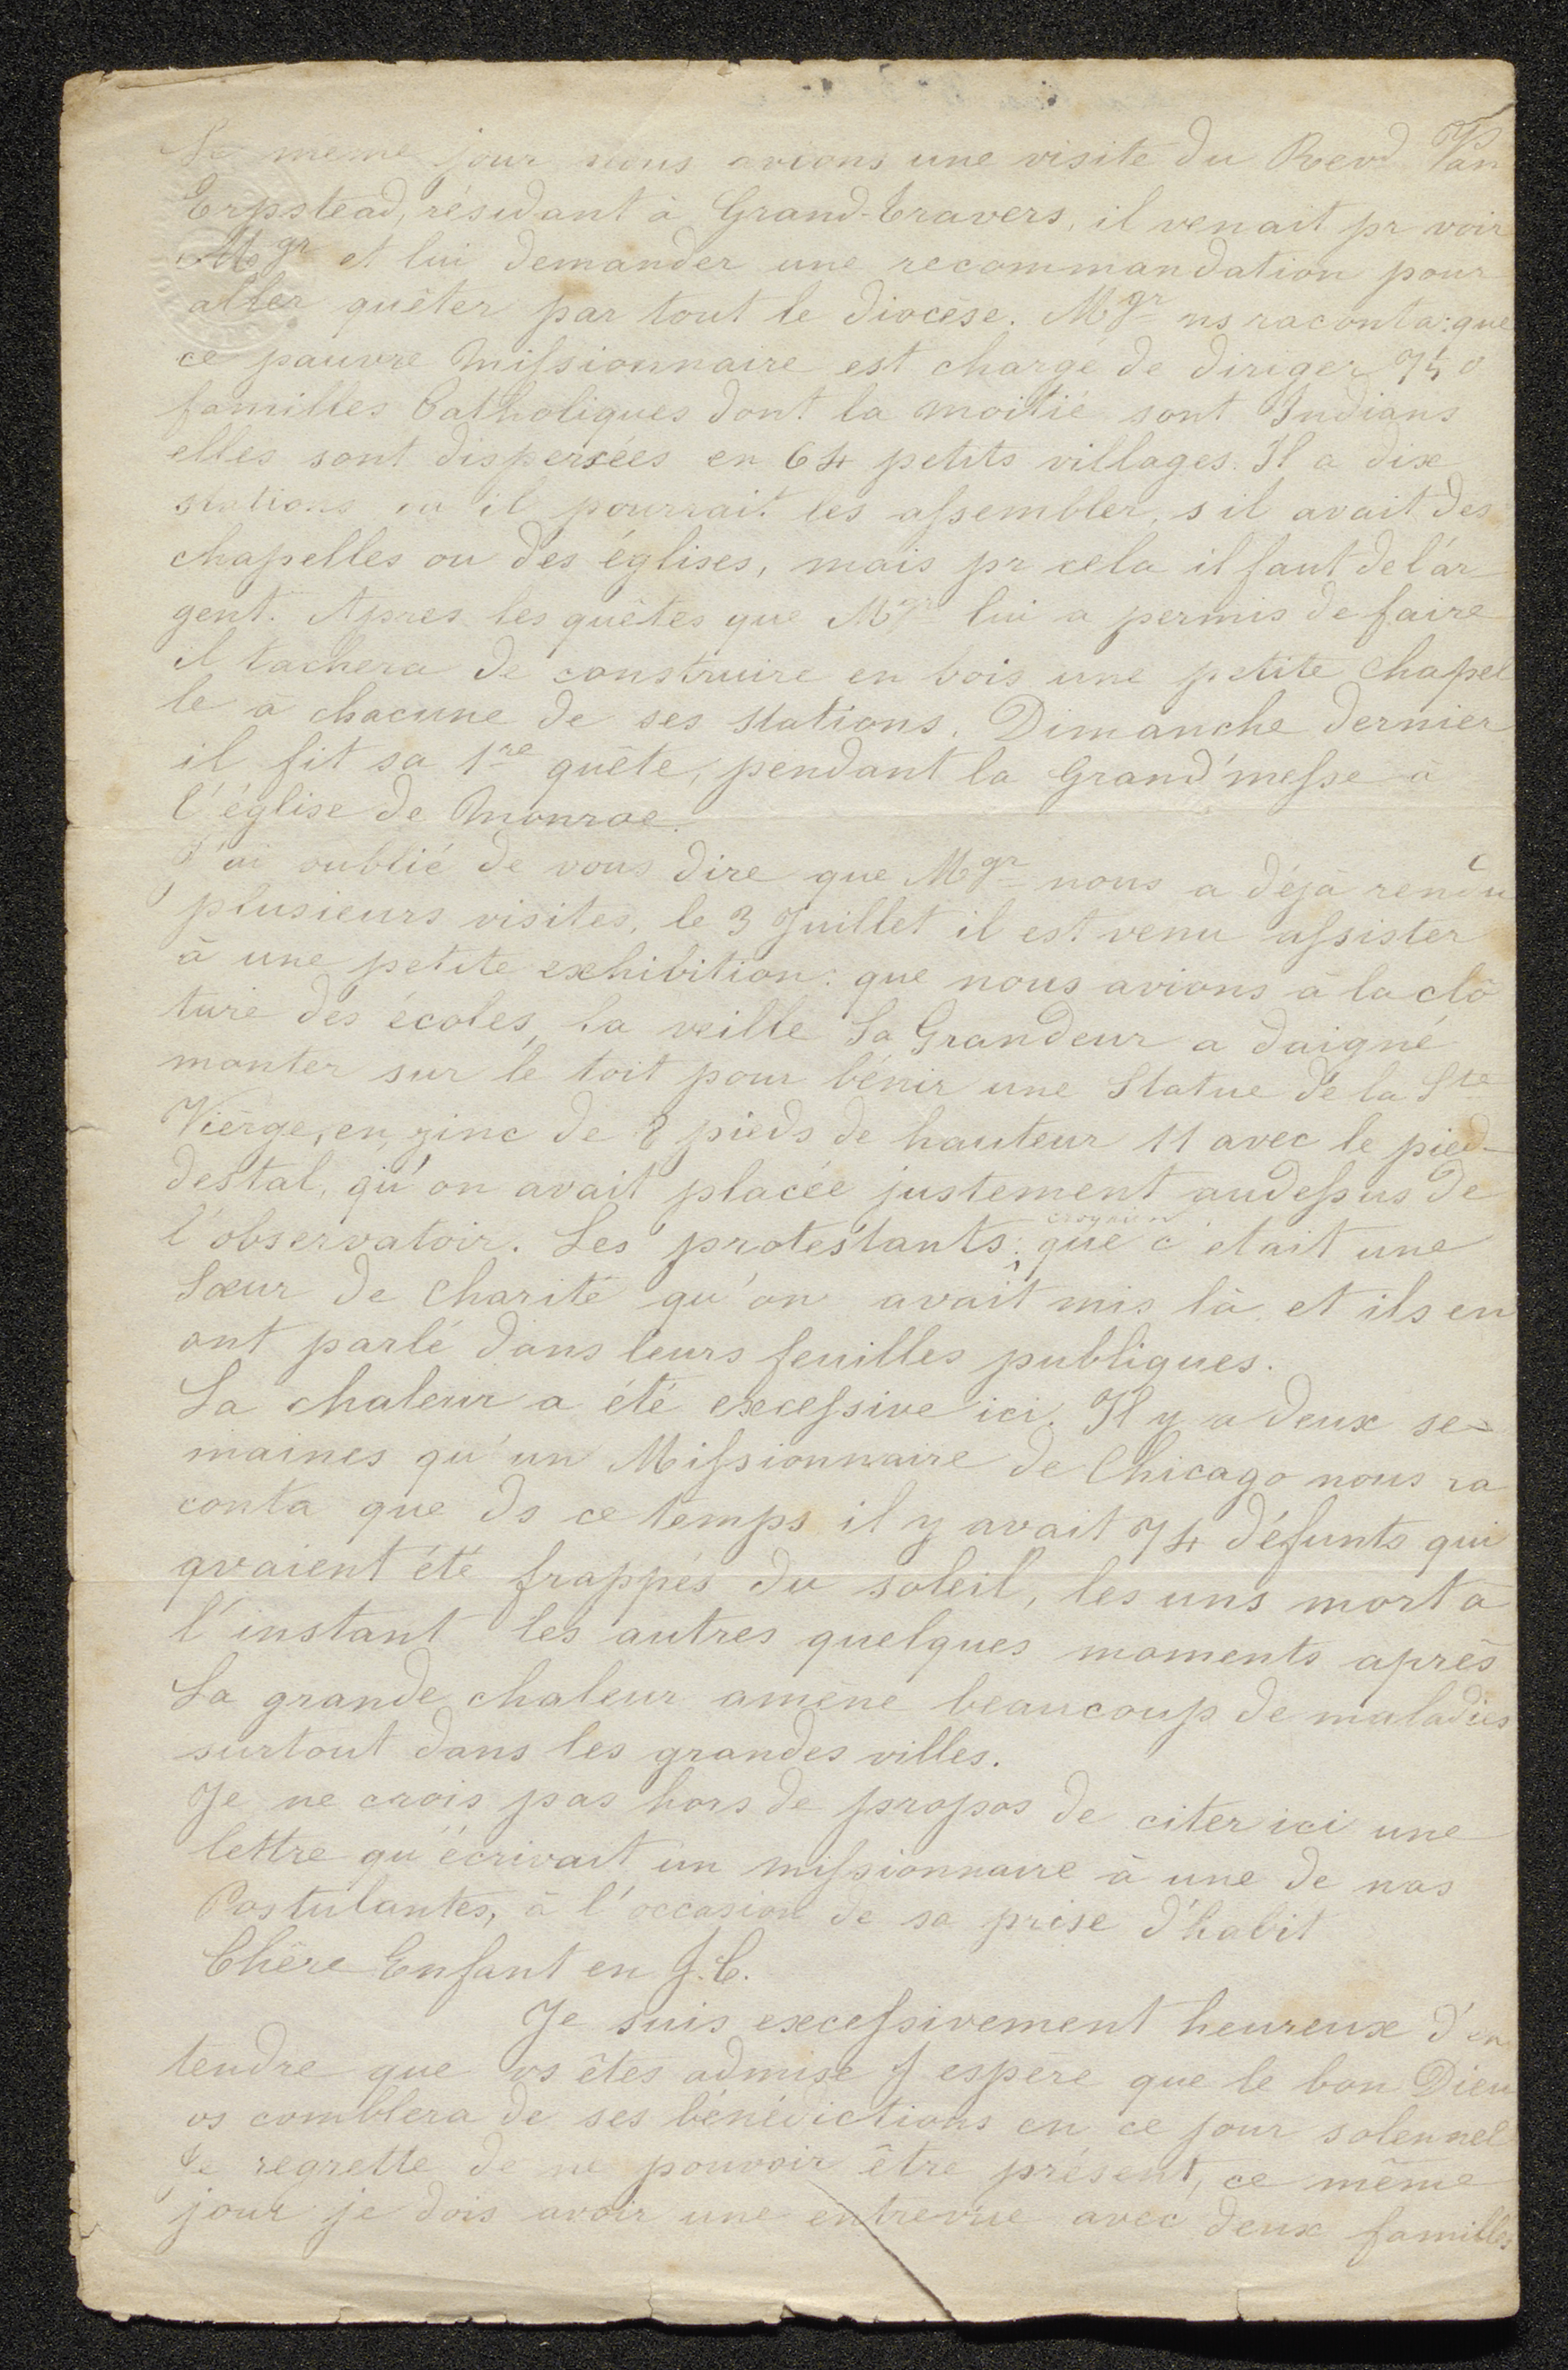 Le même jour nous avions une visite du Revd Van
Erpstead, résidant à Grand-Travers, il venait pr voir
Mgr et lui demander une recommandation pour
aller quêter par tout le diocèse. Mgr ns raconta: que
ce pauvre Missionnaire est chargé de diriger 750
familles Catholiques dont la moitié sont Indians
elles sont dispersées en 64 petits villages. Il a dix
stations ou il pourrait les assembler, s il avait des
chapelles ou des églises, mais pr cela il faut de l'ar-
gent. Apres les quêtes que Mgr lui a permis de faire
il tachera de construire en bois une petite chapel
le à chacune de ses stations. Dimanche dernier
il fit sa 1re quête, pendant la Grand'messe à
l'église de Monroe.
J'ai oublié de vous dire que Mgr nous a déjà rendu
plusieurs visites, le 3 Juillet il est venu assister
à une petite exhibition: que nous avions à la clô
ture des écoles, la veille Sa Grandeur a daigné
monter sur le toit pour bénir une Statue de la Ste
Vièrge, en zinc de 8 pieds de hauteur 11 avec le pied-
destal, qu'on avait placée justement audessus de
l'observatoir. Les protestants: croyaient que c'etait une
Sœur de Charité qu'on avait mis là et ils en
ont parlé dans leurs feuilles publiques.
La chaleur a été excessive ici. Il y a deux se-
maines qu'un Missionnaire de Chicago nous ra
conta que ds ce temps il y avait 74 défunts qui
avaient été frappés du soleil, les uns mort à
l'instant les autres quelques moments après
La grande chaleur amène beaucoup de maladies
surtout dans les grandes villes.
Je ne crois pas hors de propos de citer ici une
lettre qu'écrivait un missionnaire à une de nos
Postulantes, à l'occasion de sa prise d'habit
Chère Enfant en J. C.
Je suis excessivement heureux d'en
tendre que vs êtes admise J espère que le bon Dieu
vs comblera de ses bénédictions en ce jour solennel
Je regrette de ne pouvoir être présent, ce même
jour je dois avoir une entrevue avec deux familles